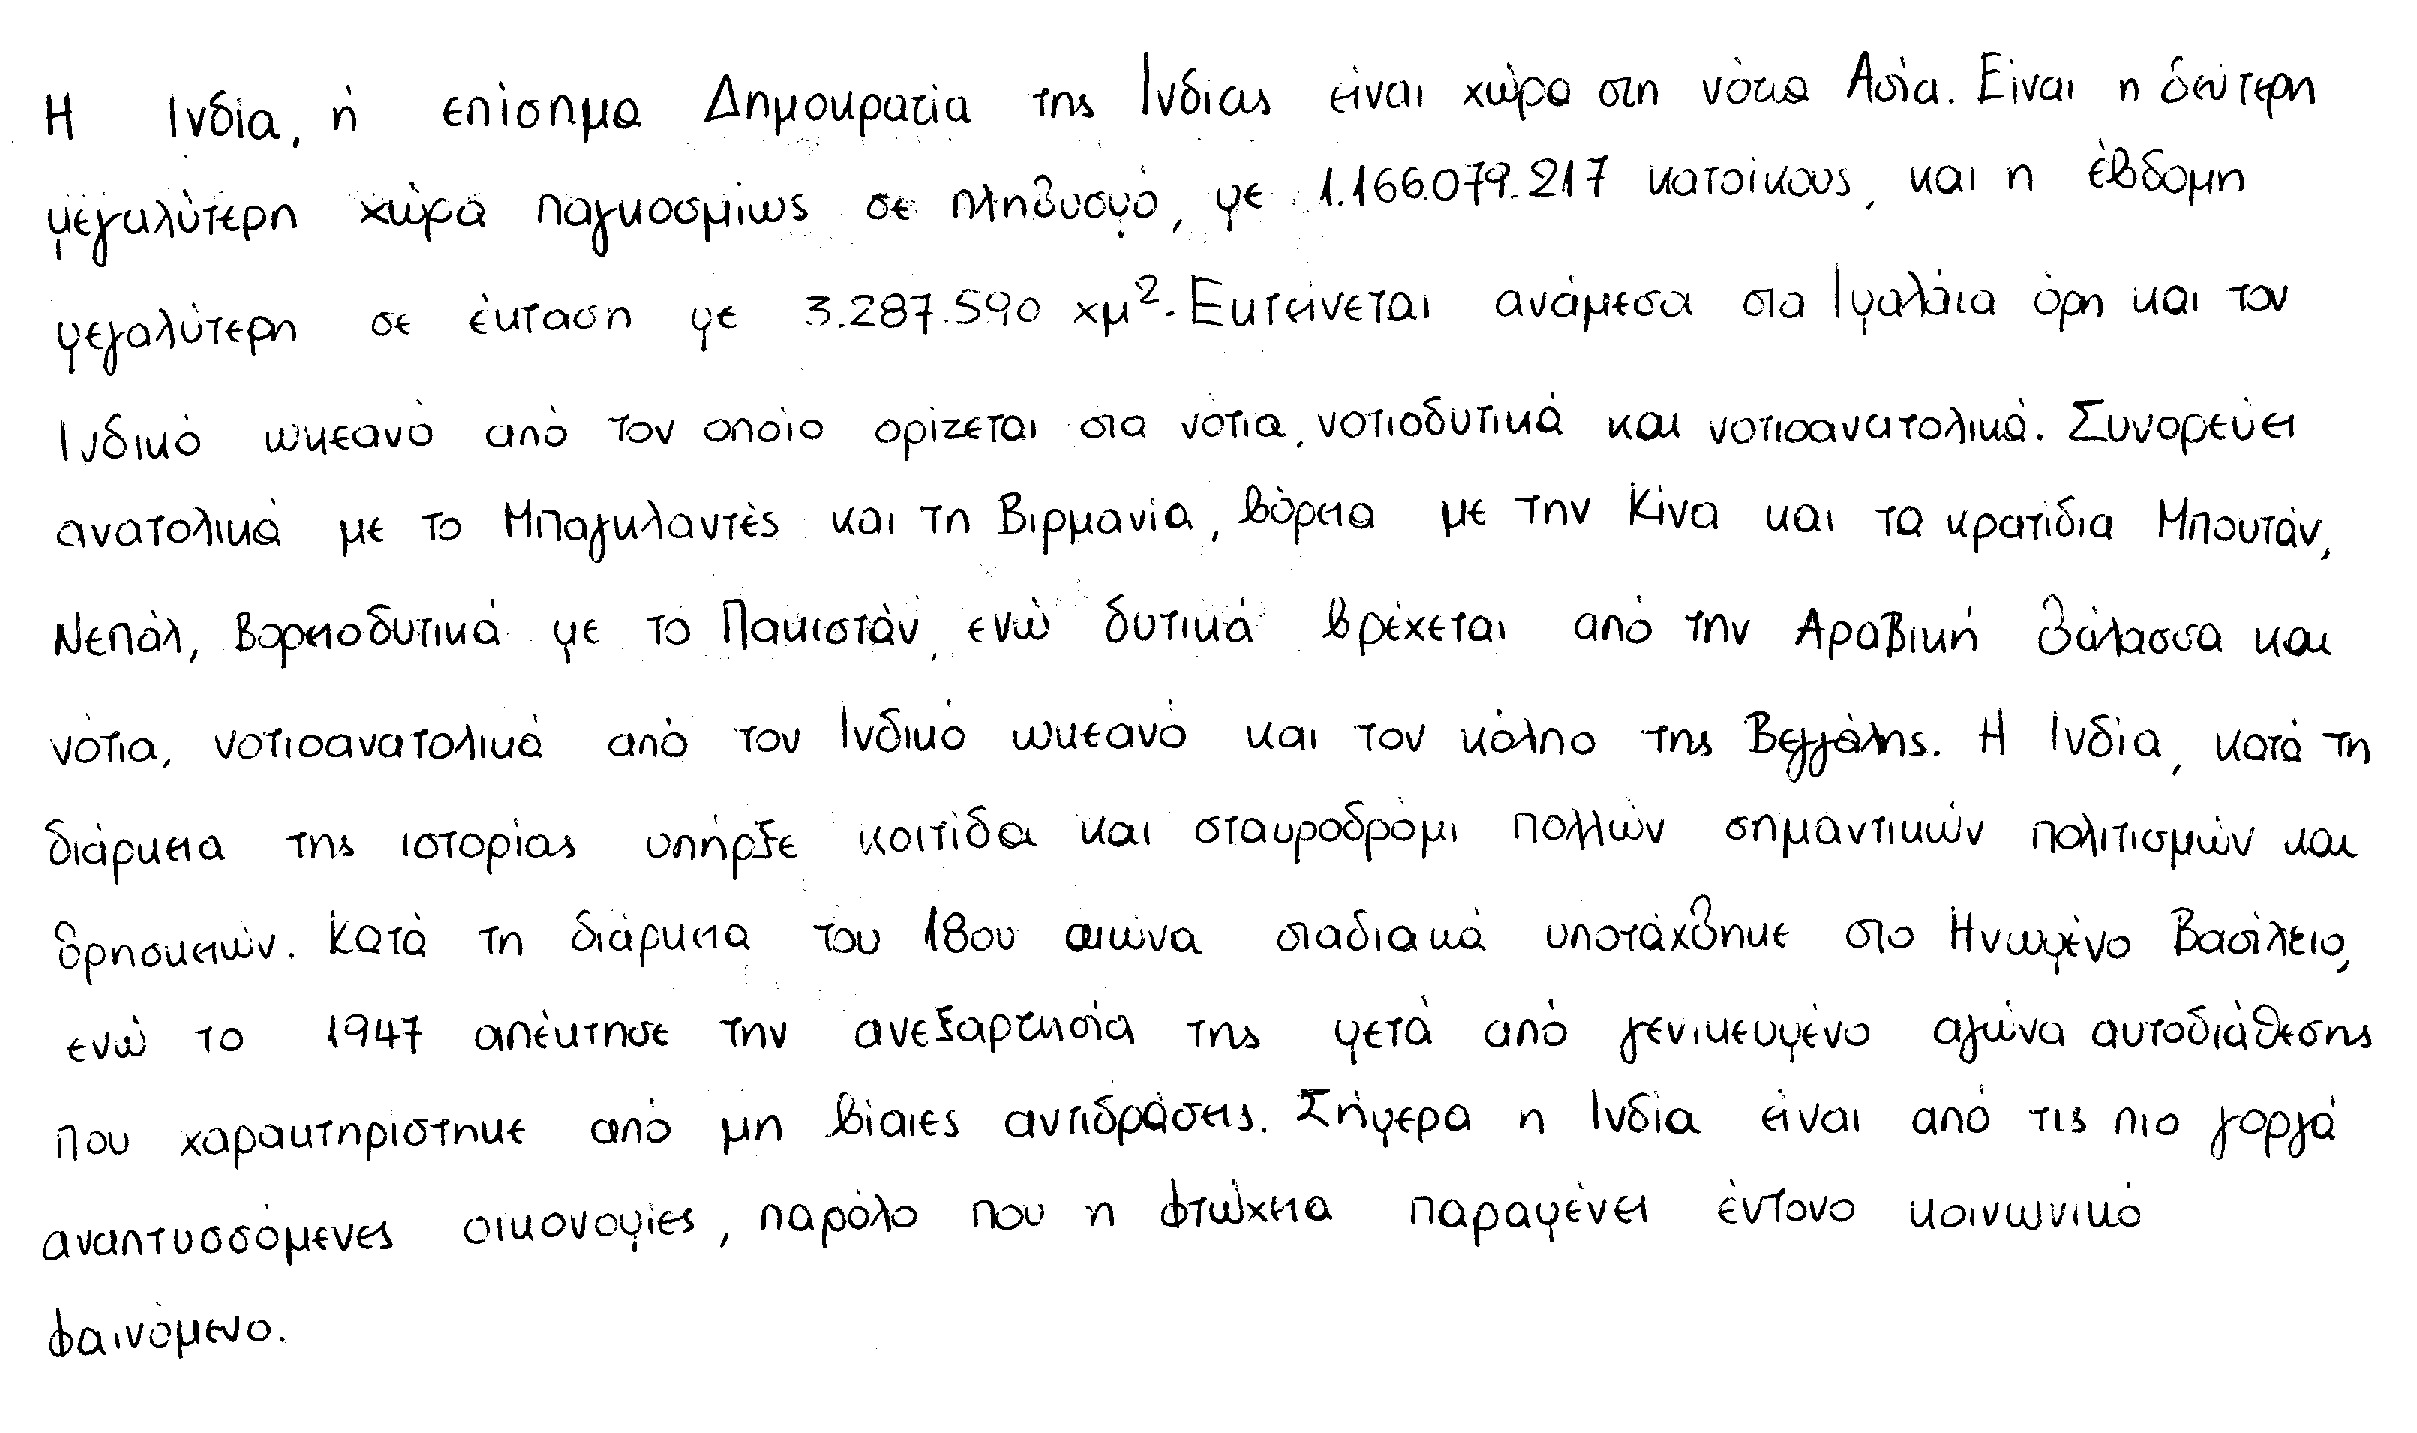 Η Ινδία, ή επίσημα Δημοκρατία της Ινδίας είναι χώρα στη νότια Ασία. Είναι η δεύτερη
μεγαλύτερη χώρα παγκοσμίως σε πληθυσμό, με 1.166.079.217 κατοίκους, και η έβδομη
μεγαλύτερη σε έκταση με 3.287.590 χμ². Εκτείνεται ανάμεσα στα Ιμαλάια όρη και τον
Ινδικό ωκεανό από τον οποίο ορίζεται στα νότια, νοτιοδυτικά και νοτιοανατολικά. Συνορεύει
ανατολικά με το Μπαγκλαντές και τη Βιρμανία, βόρεια με την Κίνα και τα κρατίδια Μπουτάν,
Νεπάλ, βορειοδυτικά με το Πακιστάν, ενώ δυτικά βρέχεται από την Αραβική θάλασσα και
νότια, νοτιοανατολικά από τον Ινδικό ωκεανό και τον κόλπο της Βεγγάλης. Η Ινδία, κατά τη
διάρκεια της ιστορίας υπήρξε κοιτίδα και σταυροδρόμι πολλών σημαντικών πολιτισμών και
θρησκειών. Κατά τη διάρκεια του 18ου αιώνα σταδιακά υποτάχθηκε στο Ηνωμένο Βασίλειο,
ενώ το 1947 απέκτησε την ανεξαρτησία της μετά από γενικευμένο αγώνα αυτοδιάθεσης
που χαρακτηρίστηκε από μη βίαιες αντιδράσεις. Σήμερα η Ινδία είναι από τις πιο γοργά
αναπτυσσόμενες οικονομίες, παρόλο που η φτώχεια παραμένει έντονο κοινωνικό
φαινόμενο.